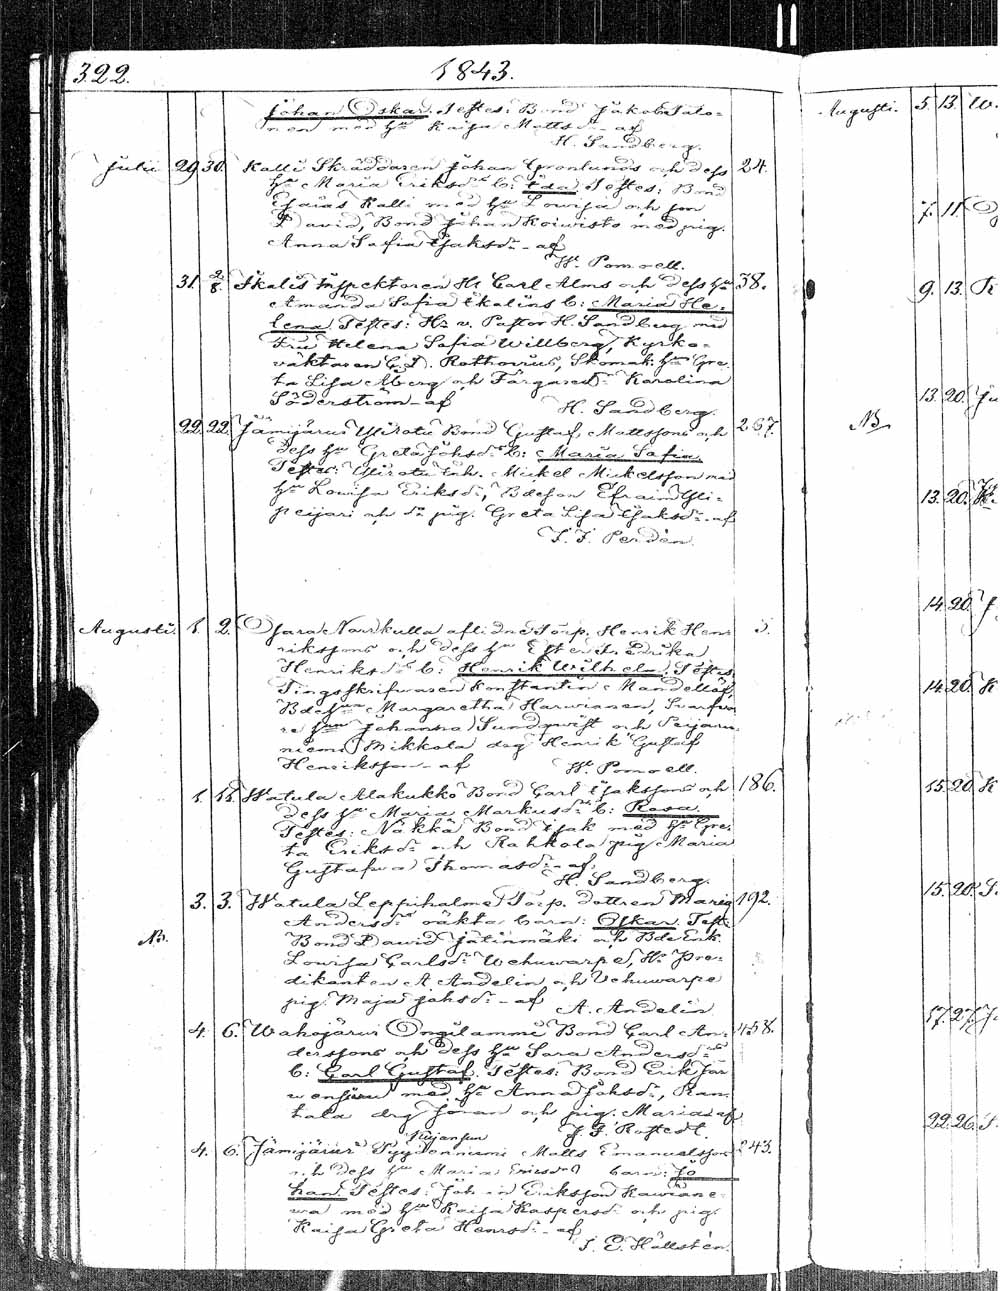 322. 1843.
Johan Oskar. Testes: Bond Jakob Salo=
nen med hu Kaisa Mattsd. af
H. Sandberg.
Julii 29 30. Kalli Skräddaren Johan Grönlunds och dess 24.
hu Maria Eriksdr b: Ida Testes: Bond
Esaias Kalli med hu Lovisa och son
David, Bond Johan Koivisto med pig.
Anna Sofia Isaksdr af
W. Pomoell.
31. 2/8. Ikalis Inspektoren Hr Carl Alms och dess hu 38.
Amanda Sofia Ekelüns b: Maria He=
lena Testes: Hr v. Pastor H. Sandberg med
Fru Helena Sofia Willberg, Kyrko=
väktaren G. D. Rothovius, Skomak. hu Gre=
ta Lisa Åberg och Färgared. Karolina
Söderström af
H. Sandberg.
22. 22. Jämijärvi Yliroti Bond Gustaf Mattssons och 267.
dess hu Greta Johsdr b: Maria Sofia
Testes: Yliroti Enk. Mickel Mickelsson med
hu Lovisa Eriksdr, Bdeson Efraim Yli=
peijari och dr pig. Greta Lisa Isaksdr af
J. F. Perdén.
Augusti. 1. 2. Osara Narkulla aflidne Torp. Henrik Hen=
rikssons och dess hu Ester Fredrika
Henriksdr b: Henrik Wilhelm. Testes:
Tingsskrifvaren Konstantin Mandellöf,
Bdehu Margaretha Harvianen,
hu Johanna Sundqvist och
niemi Mikkola drg Henrik Gustaf
Henriksson af W. Pomoell.
1. 11. Watula Alakukko Bond Carl Isakssons och 186.
dess hu Maria Markusdr b: Rosa.
Testes: Näkkä Bond Isak med hu Gre=
ta Eriksdr och Rahkola pig Maria
Gustafva Thomasdr af
H. Sandberg.
3. 3. Watula Leppihalme Torp. dottren Maria 192.
NB. Andersdr oäkta barn: Oskar Teste
Bond David Jätinmäki och Bde Enk.
Lovisa Carlsdr Wehuwarpe, Hr Pre=
dikanten A Andelin och Wehuwarpe
pig. Maja Johsdr af
A. Andelin.
4. 6. Wahojärvi Ongilammi Bond Carl An= 458.
derssons och dess hu Sara Andersdr
b: Carl Gustaf. Testes: Bond Erik Jär
wensivu med hu Anna Johsdr, Ran=
tala drg Johan och pig. Maria af
J. F. Rostedt.
4. 6. Jämijärvi Matts Emanuelsson 243.
och dess hu Maria Ericsdr barn: Jo
han. Testes: Joh an Eriksson Kauräne=
wa med hu Kaisa Kaspersd. och pig.
Kaisa Greta Henrsdr af
J. E. Hällstén.
Augusti. 5. 13. W.
7. 11.
9. 13.
13. 20. Ju
NB
13. 20.
14. 20.
14. 20. K
15. 20. K
15. 20. S.
17. 27.
22. 26. S.